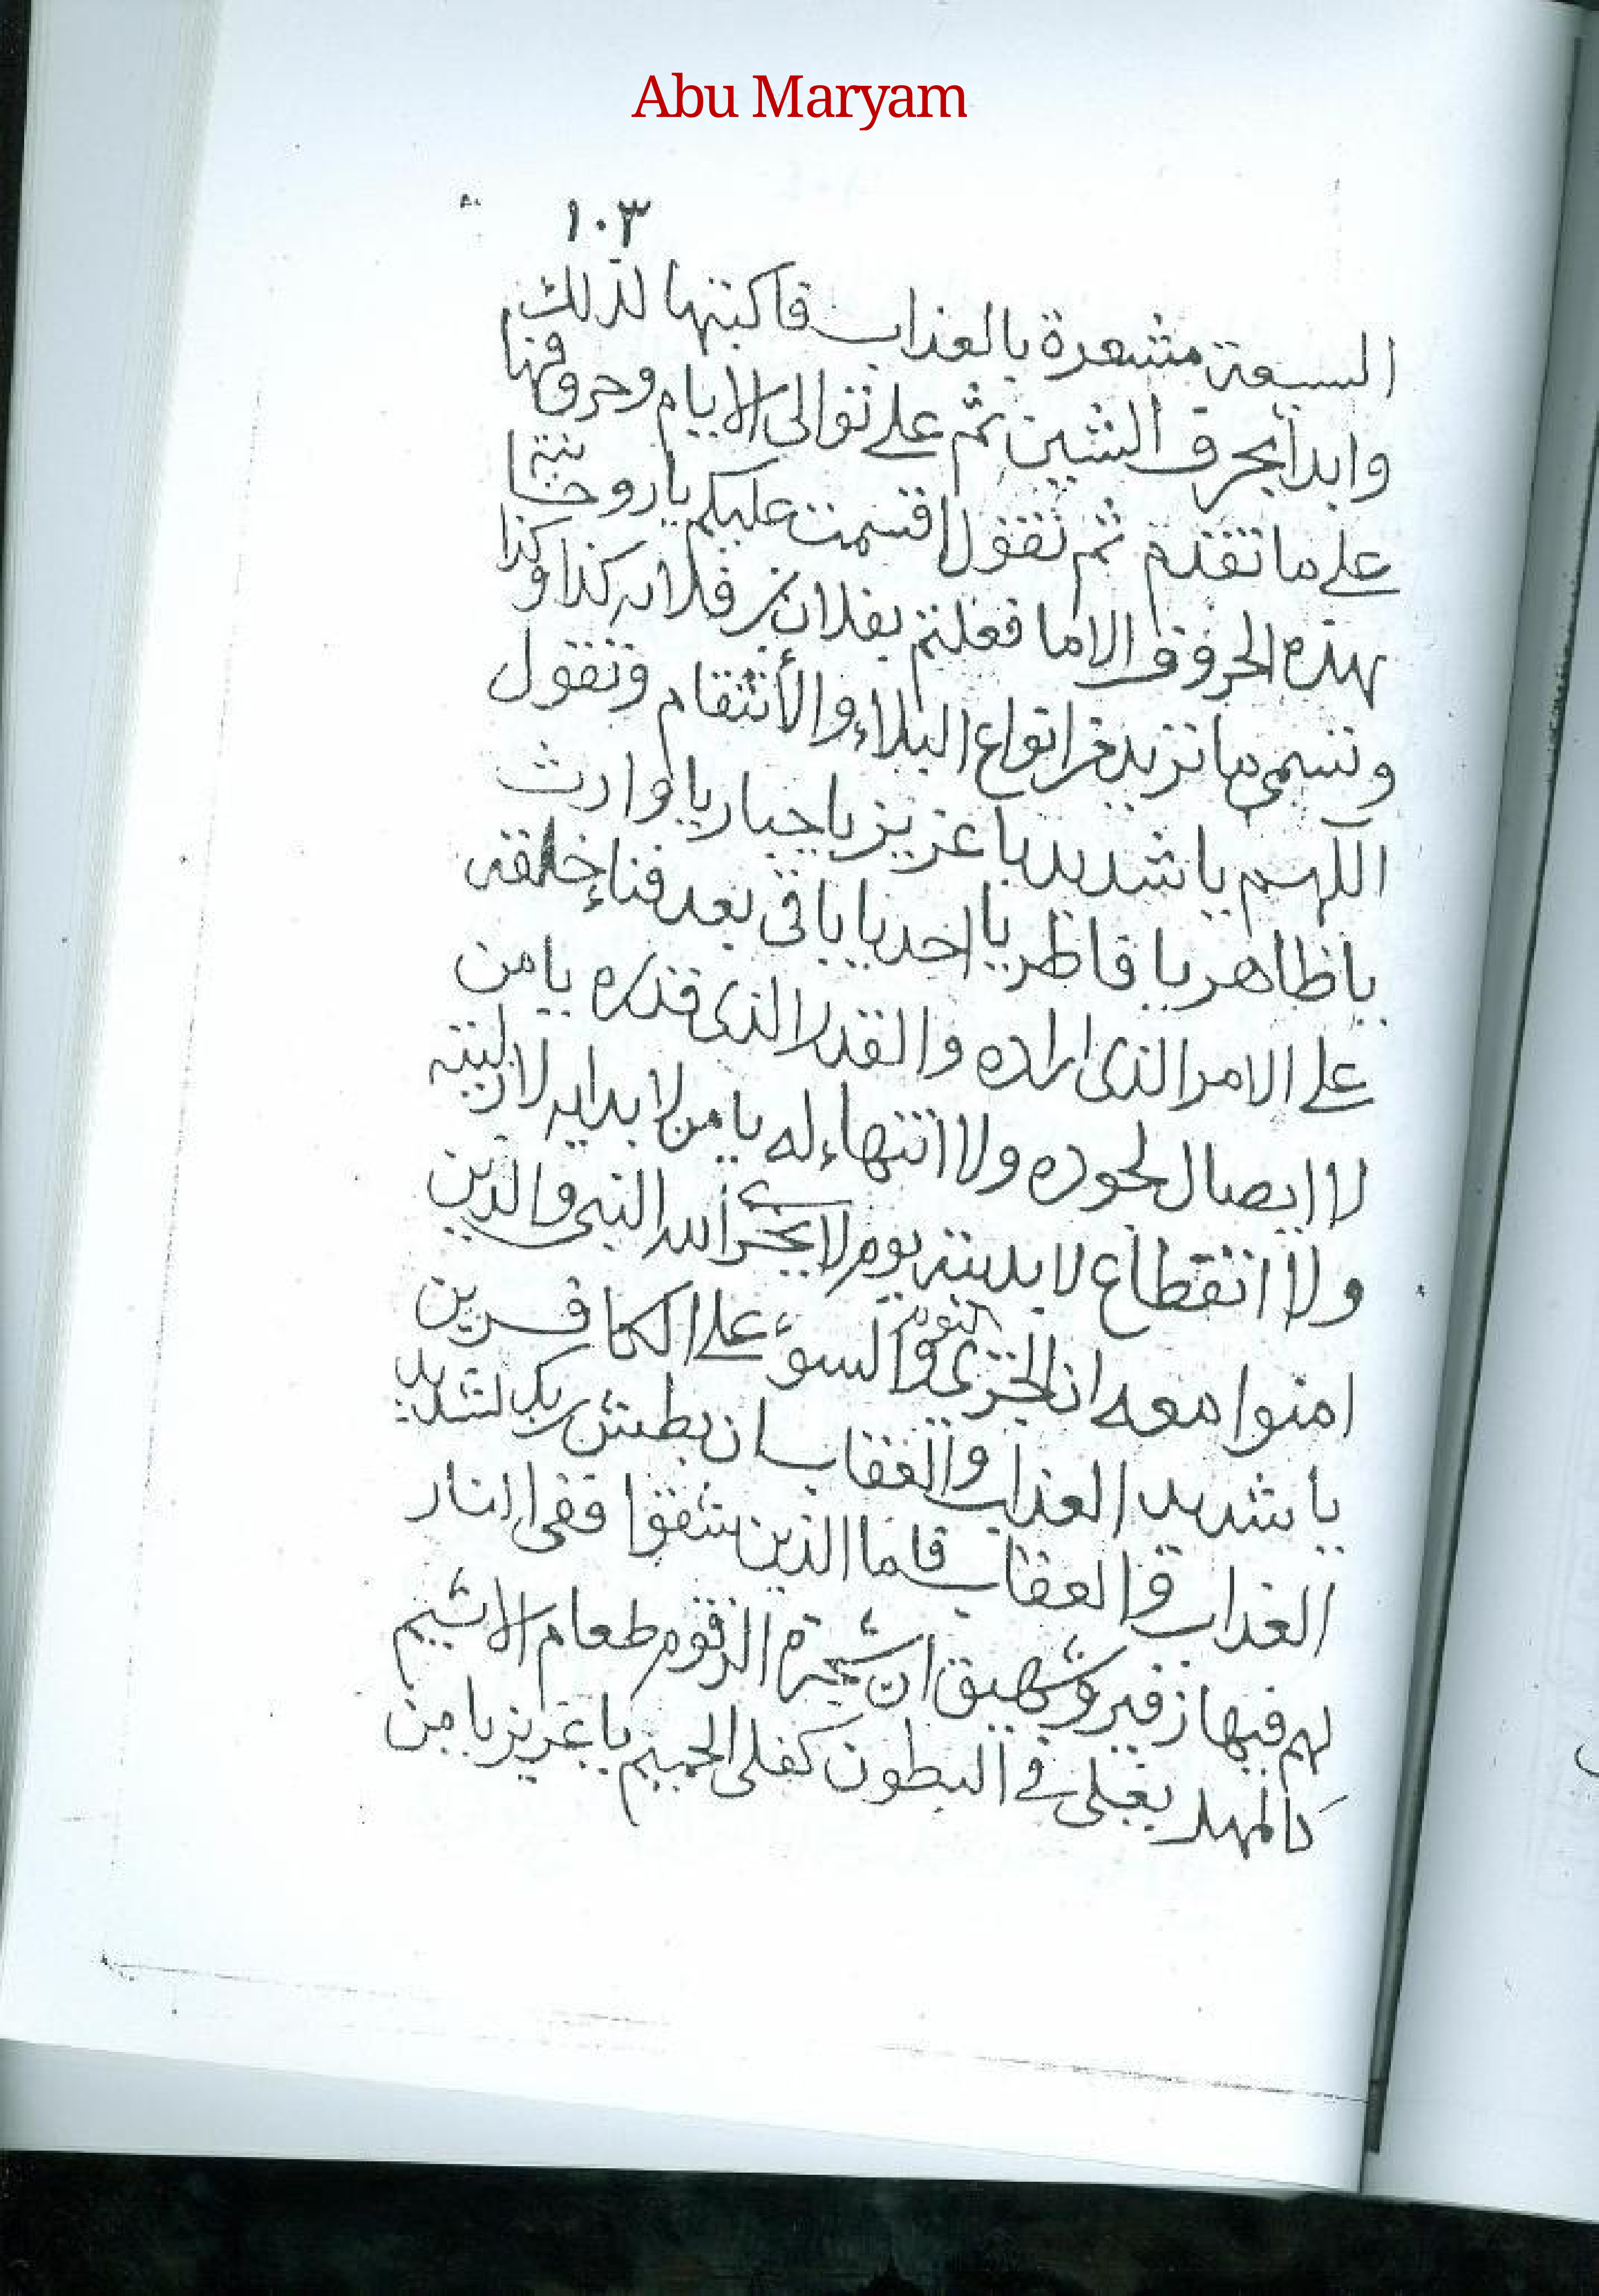 Abu Maryam
١٠٣
السبعة مشعرة بالعذاب فاكتبها لذلك
وابدأ بحرف الشين ثم على توالى الايام وحروفها
على ما تقدم ثم تقول اقسمت عليكم يا روحانية
بهذه الحروف الا ما فعلتم بفلان بن فلانه كذا وكذا
وتسمى ما تريد من انواع البلاء والأنتقام وتقول
اللهم يا شديد يا عزيز يا جبار يا وارث
يا ظاهر يا فاطر يا احد يا باقى بعد فناء خلقه
على الامر الذى اراده والقدر الذى قدره يا من
لا ايصال لجوده ولا انتهاء له يا من لا بدايه لازليته
ولا انقطاع لابديته يوم لا يخزى الله النبى والذين
امنوا معه ان الخزى اليوم والسوء على الكافرين
يا شديد العذاب والعقاب ان بطش ربك لشديد
العذاب والعقاب فاما الذين شقوا ففى النار
لهم فيها زفير وشهيق ان شجرة الزقوم طعام الاثيم
كالمهل يغلى فى البطون كغلى الحميم يا عزيز يا من